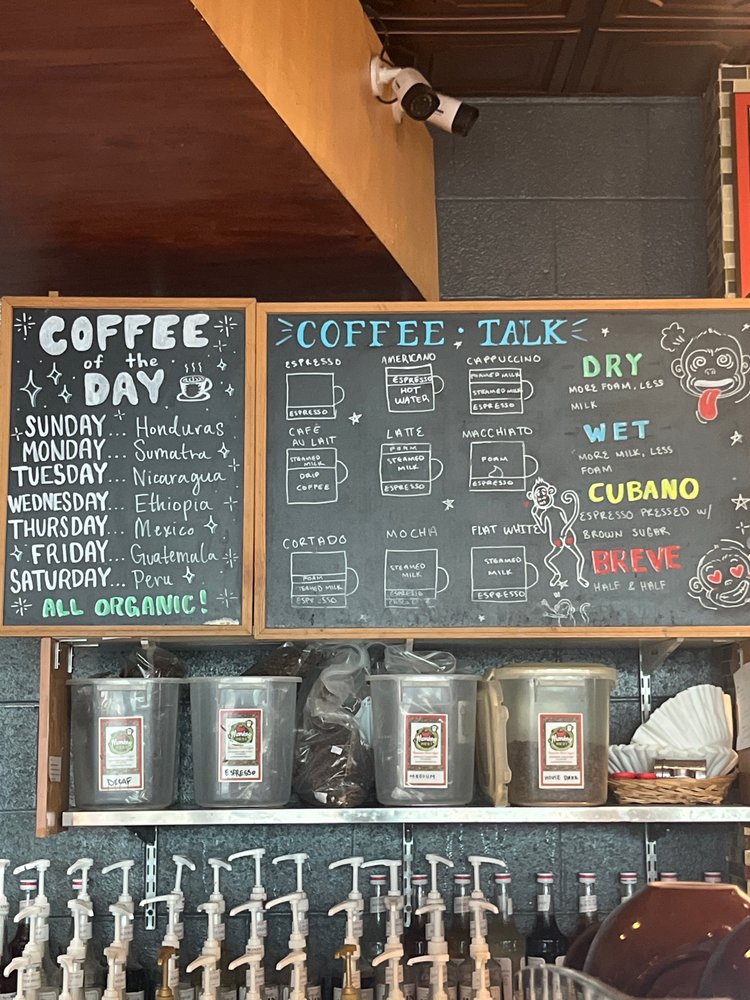 COFFEE
of the
DAY
SUNDAY... Honduras
MONDAY... Sumatra
TUESDAY... Nicaragua
WEDNESDAY... Ethiopia
THURSDAY... Mexico
FRIDAY... Guatemala
SATURDAY... Peru
ALL ORGANIC!
COFFEE · TALK
ESPRESSO
ESPRESSO
AMERICANO
ESPRESSO
HOT
WATER
CAPPUCCINO
FOAMED MILK
STEAMED MILK
ESPRESSO
CAFÉ
AU LAIT
STEAMED
MILK
DRIP
COFFEE
LATTE
FOAM
STEAMED
MILK
ESPRESSO
MACCHIATO
FOAM
ESPRESSO
CORTADO
FOAM
STEAMED MILK
ESPRESSO
MOCHA
STEAMED
MILK
ESPRESSO
FLAT WHITE
STEAMED
MILK
ESPRESSO
DRY
MORE FOAM, LESS
MILK
WET
MORE MILK, LESS
FOAM
CUBANO
ESPRESSO PRESSED W/
BROWN SUGAR
BREVE
HALF & HALF
DECAF
ESPRESSO
MEDIUM
HOUSE DARK